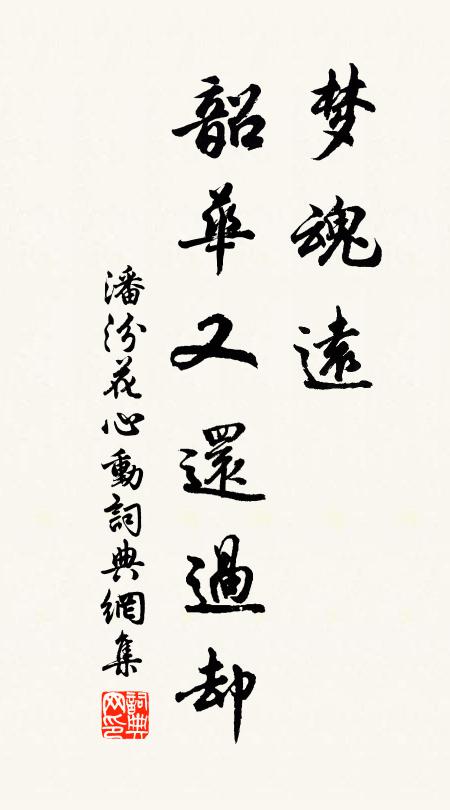 梦魂遠
韶華又還過却
潘汾花心動詞典網集
詞典网印